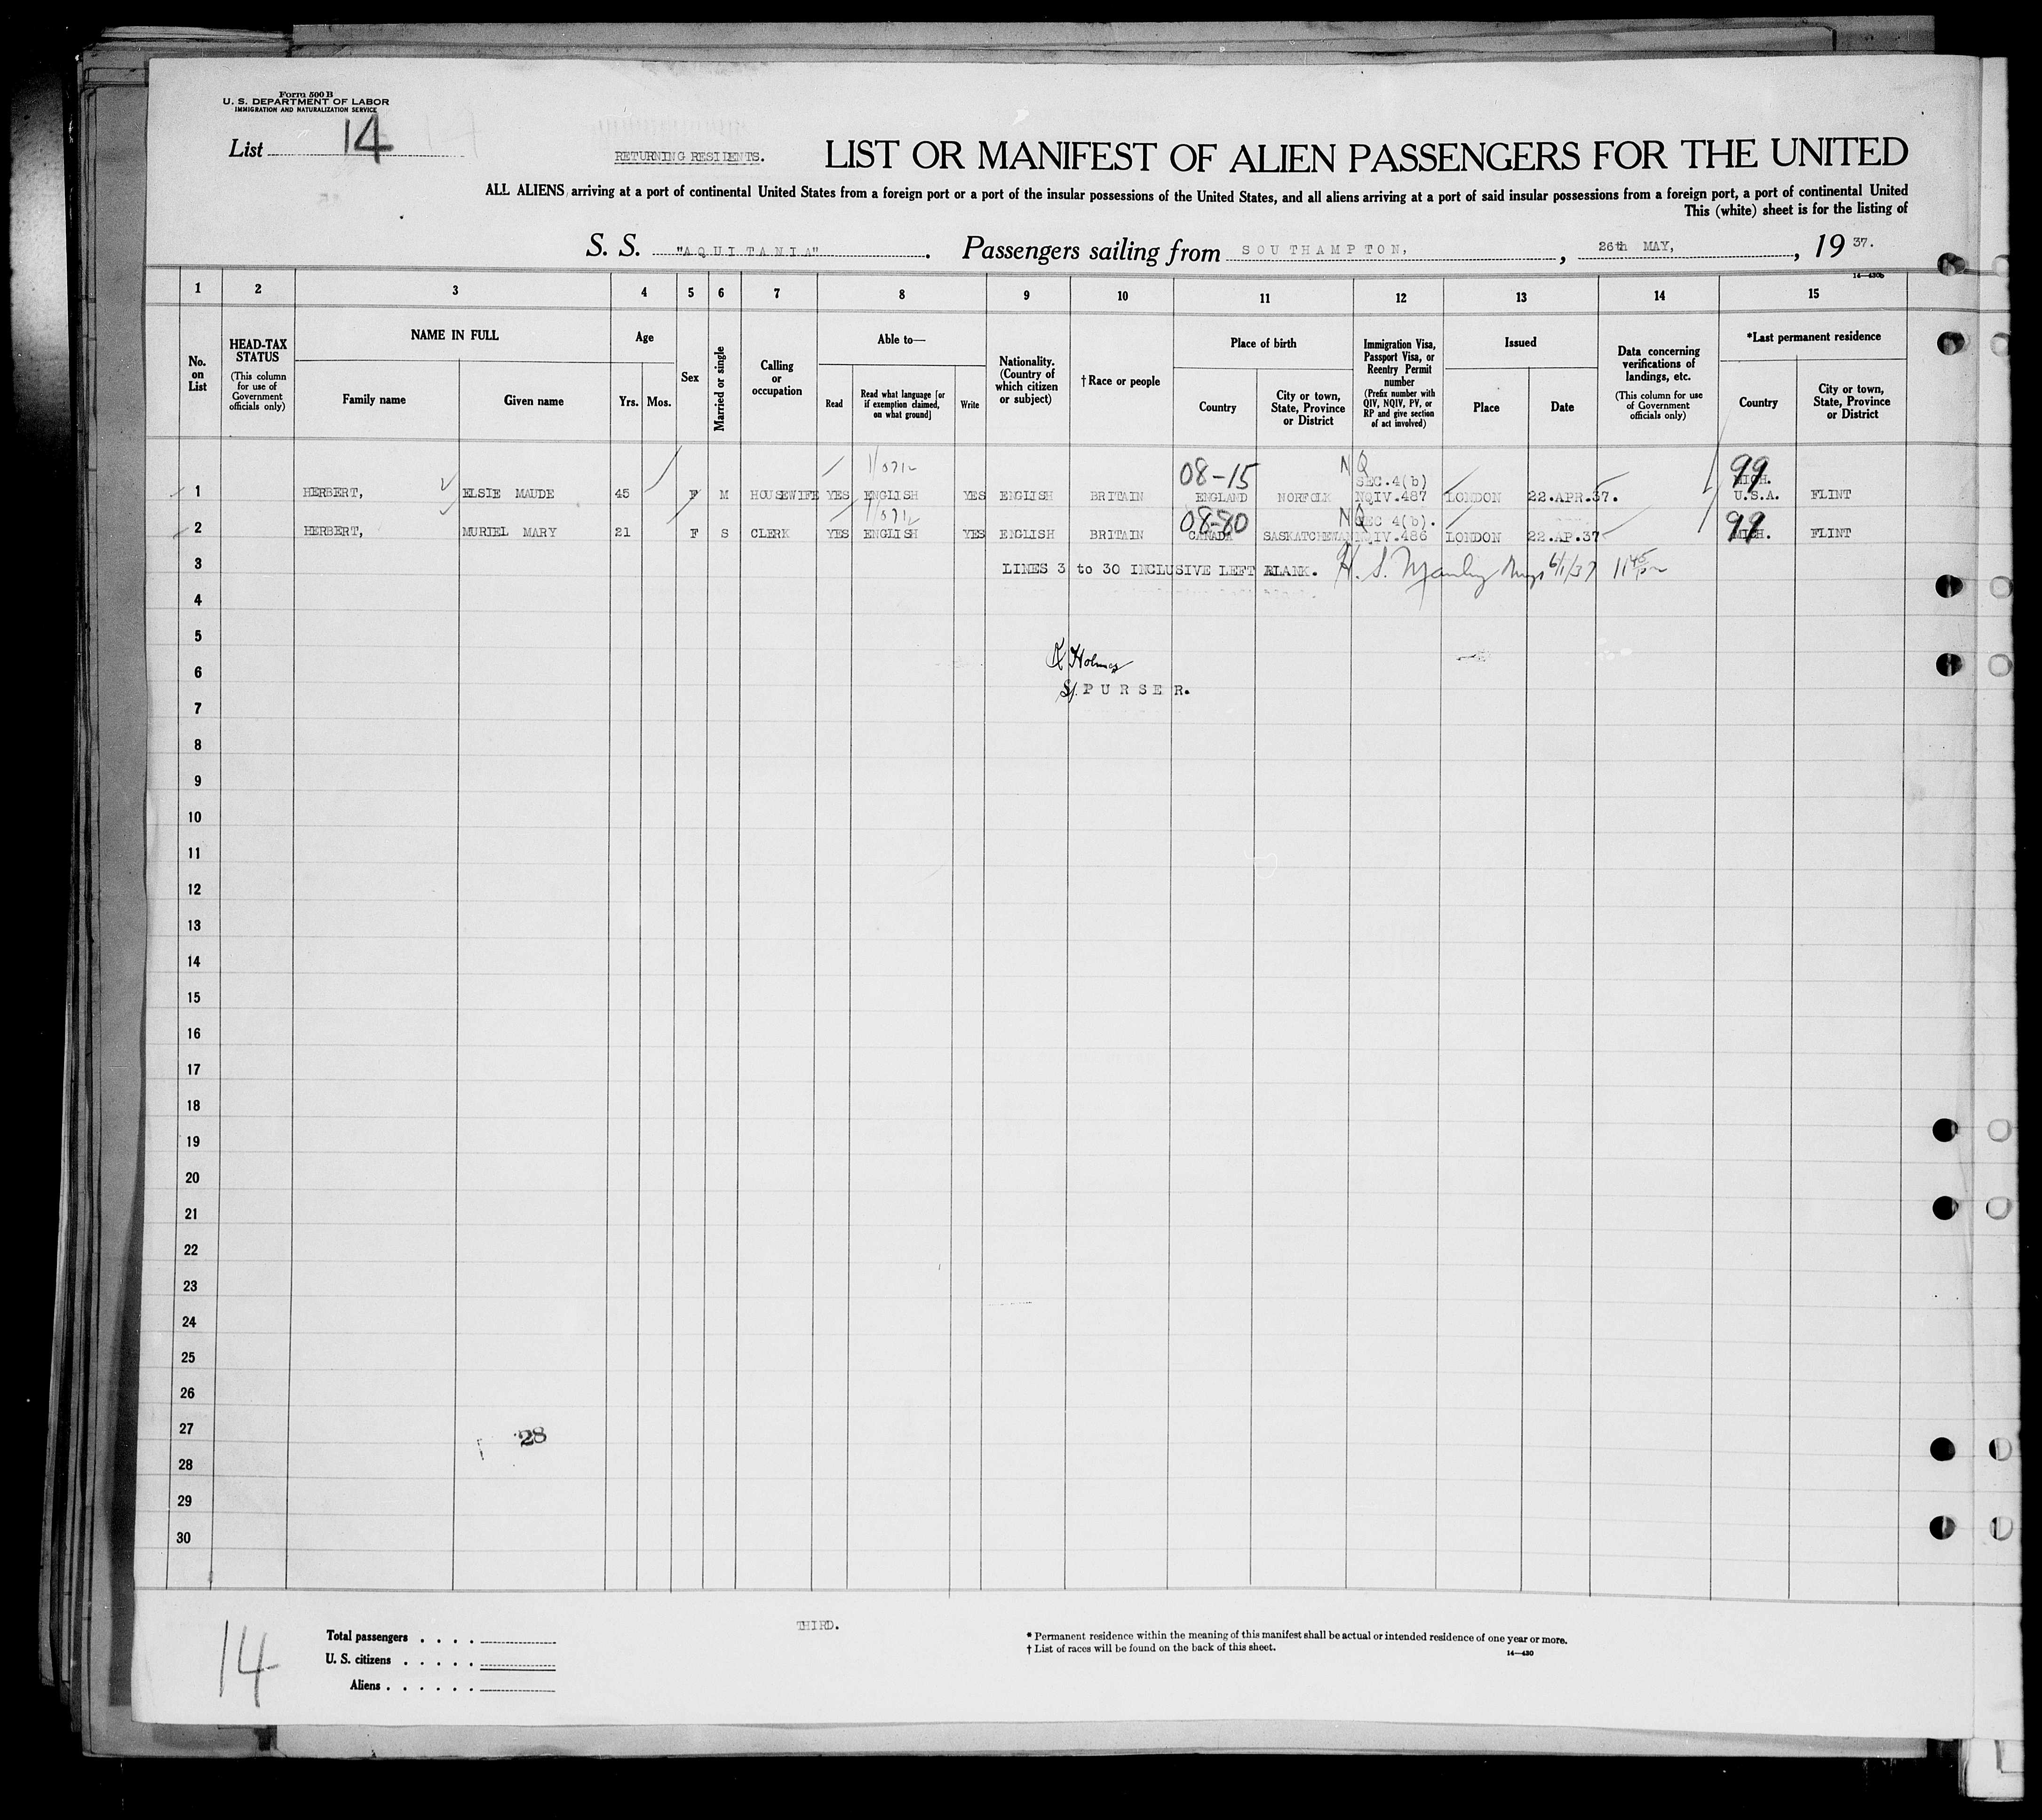 Form 500 B
U. S. DEPARTMENT OF LABOR
IMMIGRATION AND NATURALIZATION SERVICE
List 14
RETURNING RESIDENTS.
LIST OR MANIFEST OF ALIEN PASSENGERS FOR THE UNITED
ALL ALIENS arriving at a port of continental United States from a foreign port or a port of the insular possessions of the United States, and all aliens arriving at a port of said insular possessions from a foreign port, a port of continental United
This (white) sheet is for the listing of
S. S. "AQUITANIA". Passengers sailing from SOUTHAMPTON, , 26th MAY, , 19 37.
14—430b
1 2 3 4 5 6 7 8 9 10 11 12 13 14 15
No. on List
HEAD-TAX STATUS (This column for use of Government officials only)
NAME IN FULL
Family name
Given name
Age
Yrs. Mos.
Sex
Married or single
Calling or occupation
Able to—
Read
Read what language [or if exemption claimed, on what ground]
Write
Nationality. (Country of which citizen or subject)
† Race or people
Place of birth
Country
City or town, State, Province or District
Immigration Visa, Passport Visa, or Reentry Permit number (Prefix number with QIV, NQIV, PV, or RP and give section of act involved)
Issued
Place
Date
Data concerning verifications of landings, etc. (This column for use of Government officials only)
*Last permanent residence
Country
City or town, State, Province or District
08-15 NQ 99
SEC.4(b) MICH.
1 HERBERT, ELSIE MAUDE 45 F M HOUSEWIFE YES ENGLISH YES ENGLISH BRITAIN ENGLAND NORFOLK NQIV.487 LONDON 22.APR.37. U.S.A. FLINT
08-80 NQ SEC 4(b). 99
2 HERBERT, MURIEL MARY 21 F S CLERK YES ENGLISH YES ENGLISH BRITAIN CANADA SASKATCHEWAN NQIV.486 LONDON 22.AP.37 MICH. FLINT
3 LINES 3 to 30 INCLUSIVE LEFT BLANK. H. S. 6/1/37 11 45
4
5
Holmes
6
PURSER.
7
8
9
10
11
12
13
14
15
16
17
18
19
20
21
22
23
24
25
26
27
28
28
29
30
14
Total passengers . . . .
U. S. citizens . . . . .
Aliens . . . . . .
THIRD.
* Permanent residence within the meaning of this manifest shall be actual or intended residence of one year or more.
† List of races will be found on the back of this sheet.
14—430